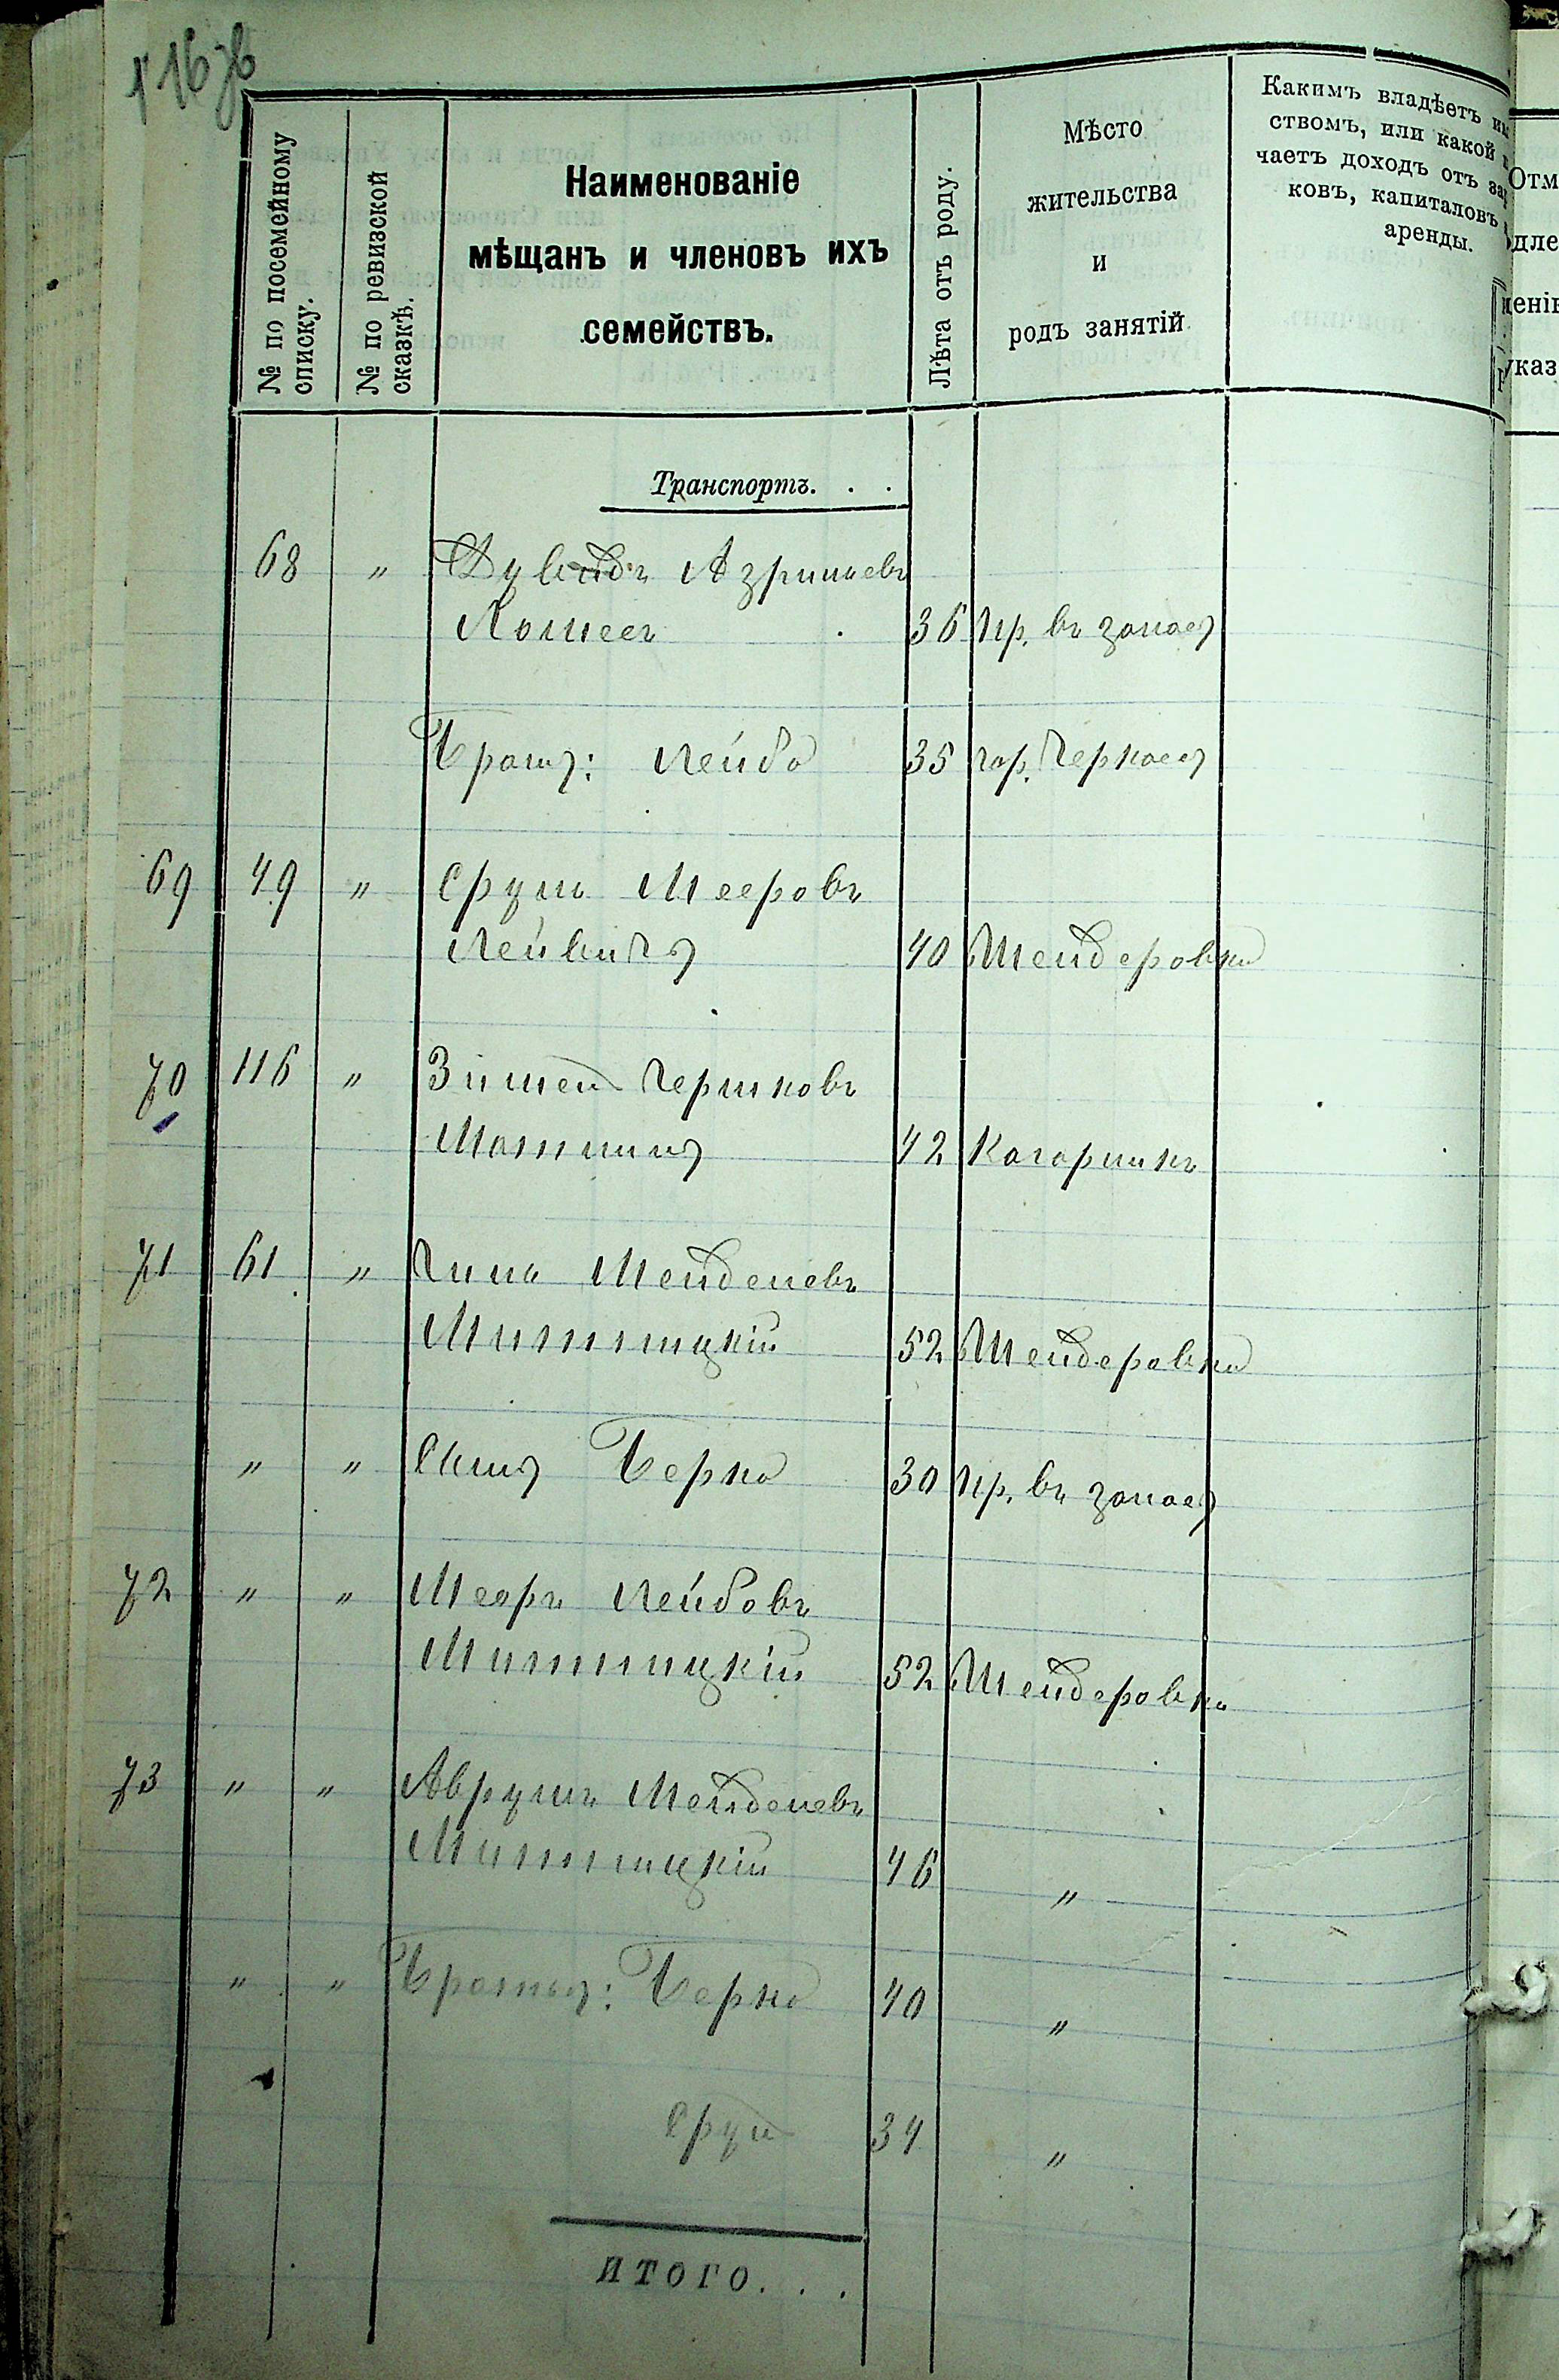 116 зв
№ по посемейному
списку.
№ по ревизской
сказкѣ.
Наименованіе
мѣщанъ и членовъ ихъ
семействъ.
Лѣта отъ роду.
Мѣсто
жительства
и
родъ занятій
Какимъ владѣетъ им
ствомъ, или какой п
чаетъ доходъ отъ зар
ковъ, капиталовъ
аренды.
Отм
дле
ченію
указ
Транспортъ. . .
68 " Дувидъ Азрилевъ
36 Пр. въ запасѣ
Братъ: Лейба 35 гор. Черкасы
69 49 " Сруль Мееровъ
40 Шендеровка
70 116 " Зишель Гершковъ
42 Кагарлыкъ
71 61 " Менделевъ
52 Шендеровка
" " Сынъ Берко 30 Пр. въ запасѣ
72 " " Мееръ Лейбовъ
52 Шендеровка
73 " " Аврумъ Менделевъ
46 "
" " Братья: Берко 40 "
Сруль 34 "
ИТОГО. . .